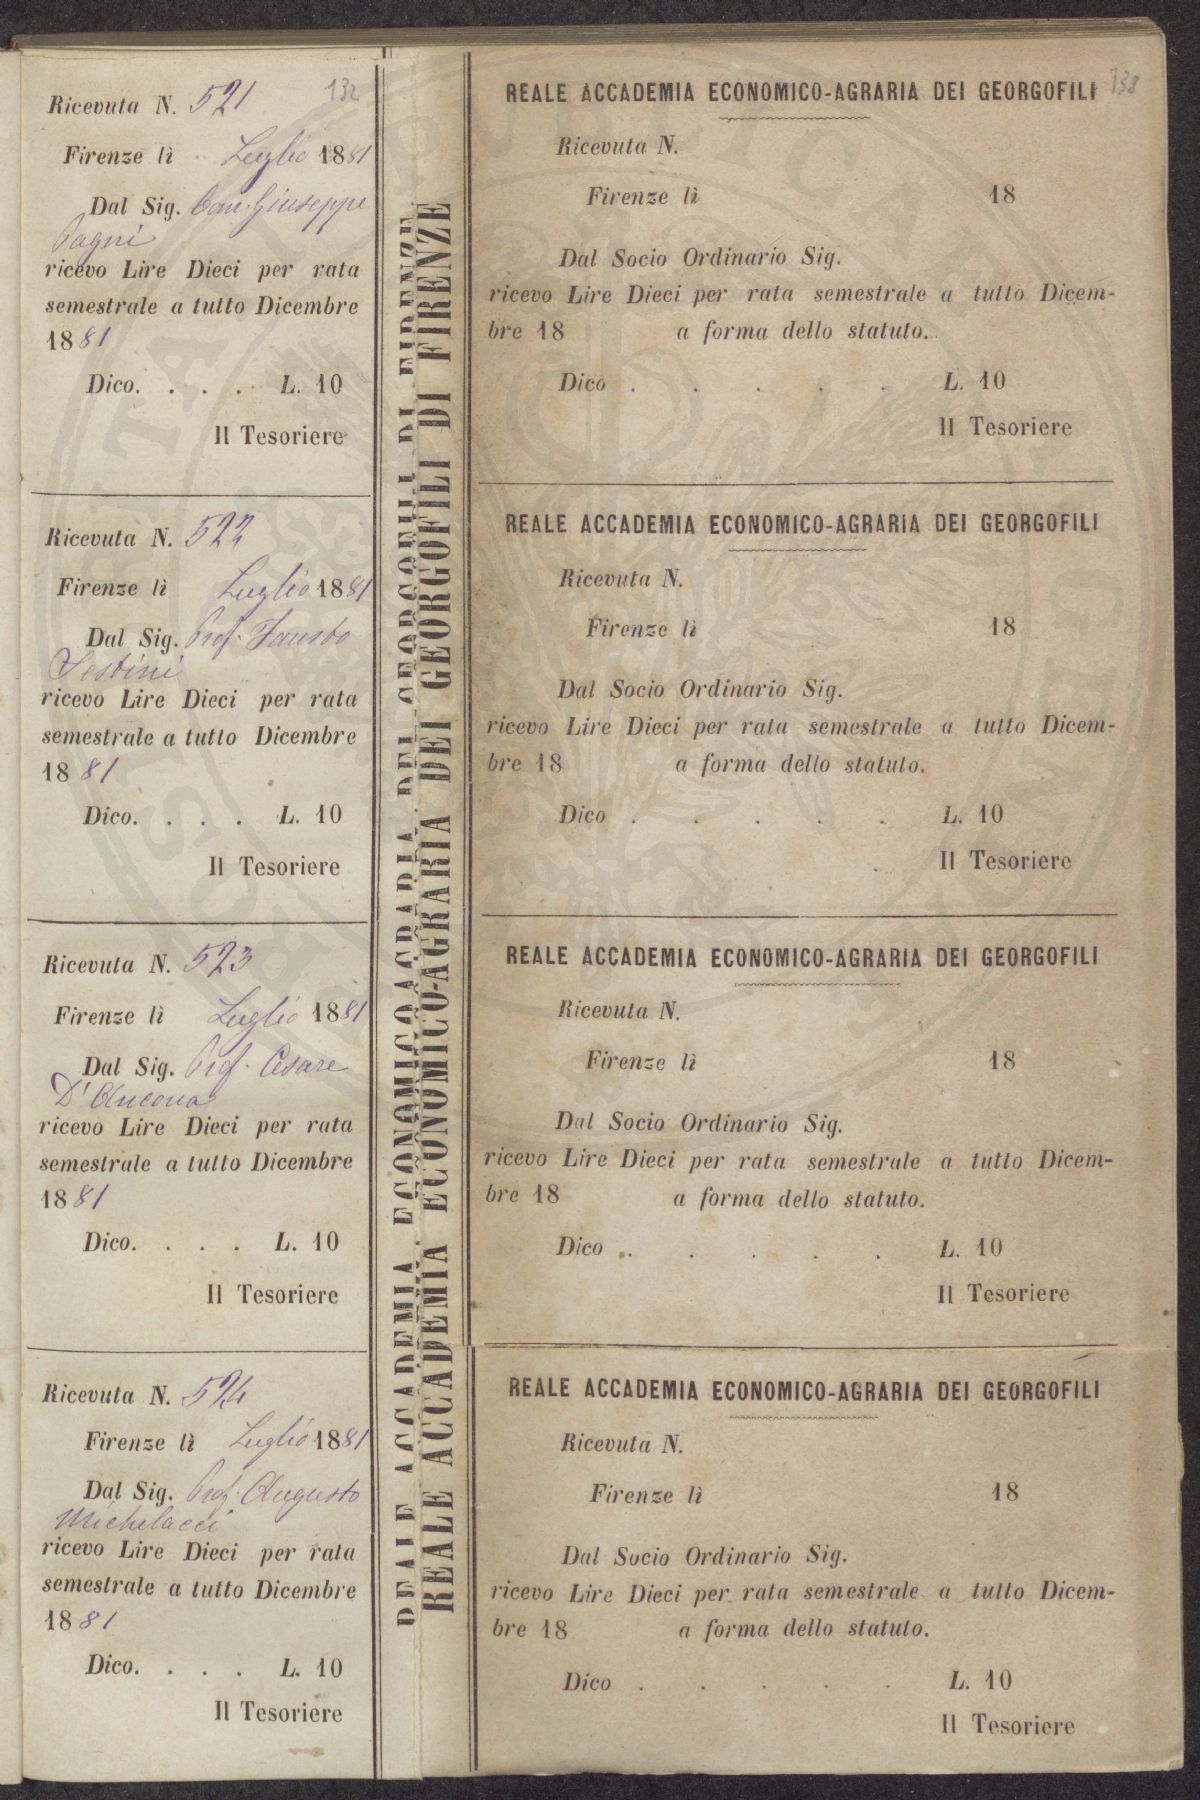 132
Ricevuta N. 521
Firenze lì Luglio 1881
Dal Sig. Cav. Giuseppe
Pagni
ricevo Lire Dieci per rata
semestrale a tutto Dicembre
1881
Dico. . . . L. 10
Il Tesoriere
Ricevuta N. 522
Firenze lì Luglio 1881
Dal Sig. Prof. Fausto
Sestini
ricevo Lire Dieci per rata
semestrale a tutto Dicembre
1881
Dico. . . . L. 10
Il Tesoriere
Ricevuta N. 523
Firenze lì Luglio 1881
Dal Sig. Prof. Cesare
D'Ancona
ricevo Lire Dieci per rata
semestrale a tutto Dicembre
1881
Dico. . . . L. 10
Il Tesoriere
Ricevuta N. 524
Firenze lì Luglio 1881
Dal Sig. Prof. Augusto
Michelacci
ricevo Lire Dieci per rata
semestrale a tutto Dicembre
1881
Dico. . . . L. 10
Il Tesoriere
REALE ACCADEMIA ECONOMICO-AGRARIA DEI GEORGOFILI DI FIRENZE
REALE ACCADEMIA ECONOMICO-AGRARIA DEI GEORGOFILI DI FIRENZE
138
REALE ACCADEMIA ECONOMICO-AGRARIA DEI GEORGOFILI
Ricevuta N.
Firenze lì 18
Dal Socio Ordinario Sig.
ricevo Lire Dieci per rata semestrale a tutto Dicem-
bre 18 a forma dello statuto.
Dico . . . . . L. 10
Il Tesoriere
REALE ACCADEMIA ECONOMICO-AGRARIA DEI GEORGOFILI
Ricevuta N.
Firenze lì 18
Dal Socio Ordinario Sig.
ricevo Lire Dieci per rata semestrale a tutto Dicem-
bre 18 a forma dello statuto.
Dico . . . . . L. 10
Il Tesoriere
REALE ACCADEMIA ECONOMICO-AGRARIA DEI GEORGOFILI
Ricevuta N.
Firenze lì 18
Dal Socio Ordinario Sig.
ricevo Lire Dieci per rata semestrale a tutto Dicem-
bre 18 a forma dello statuto.
Dico . . . . . L. 10
Il Tesoriere
REALE ACCADEMIA ECONOMICO-AGRARIA DEI GEORGOFILI
Ricevuta N.
Firenze lì 18
Dal Socio Ordinario Sig.
ricevo Lire Dieci per rata semestrale a tutto Dicem-
bre 18 a forma dello statuto.
Dico . . . . . L. 10
Il Tesoriere